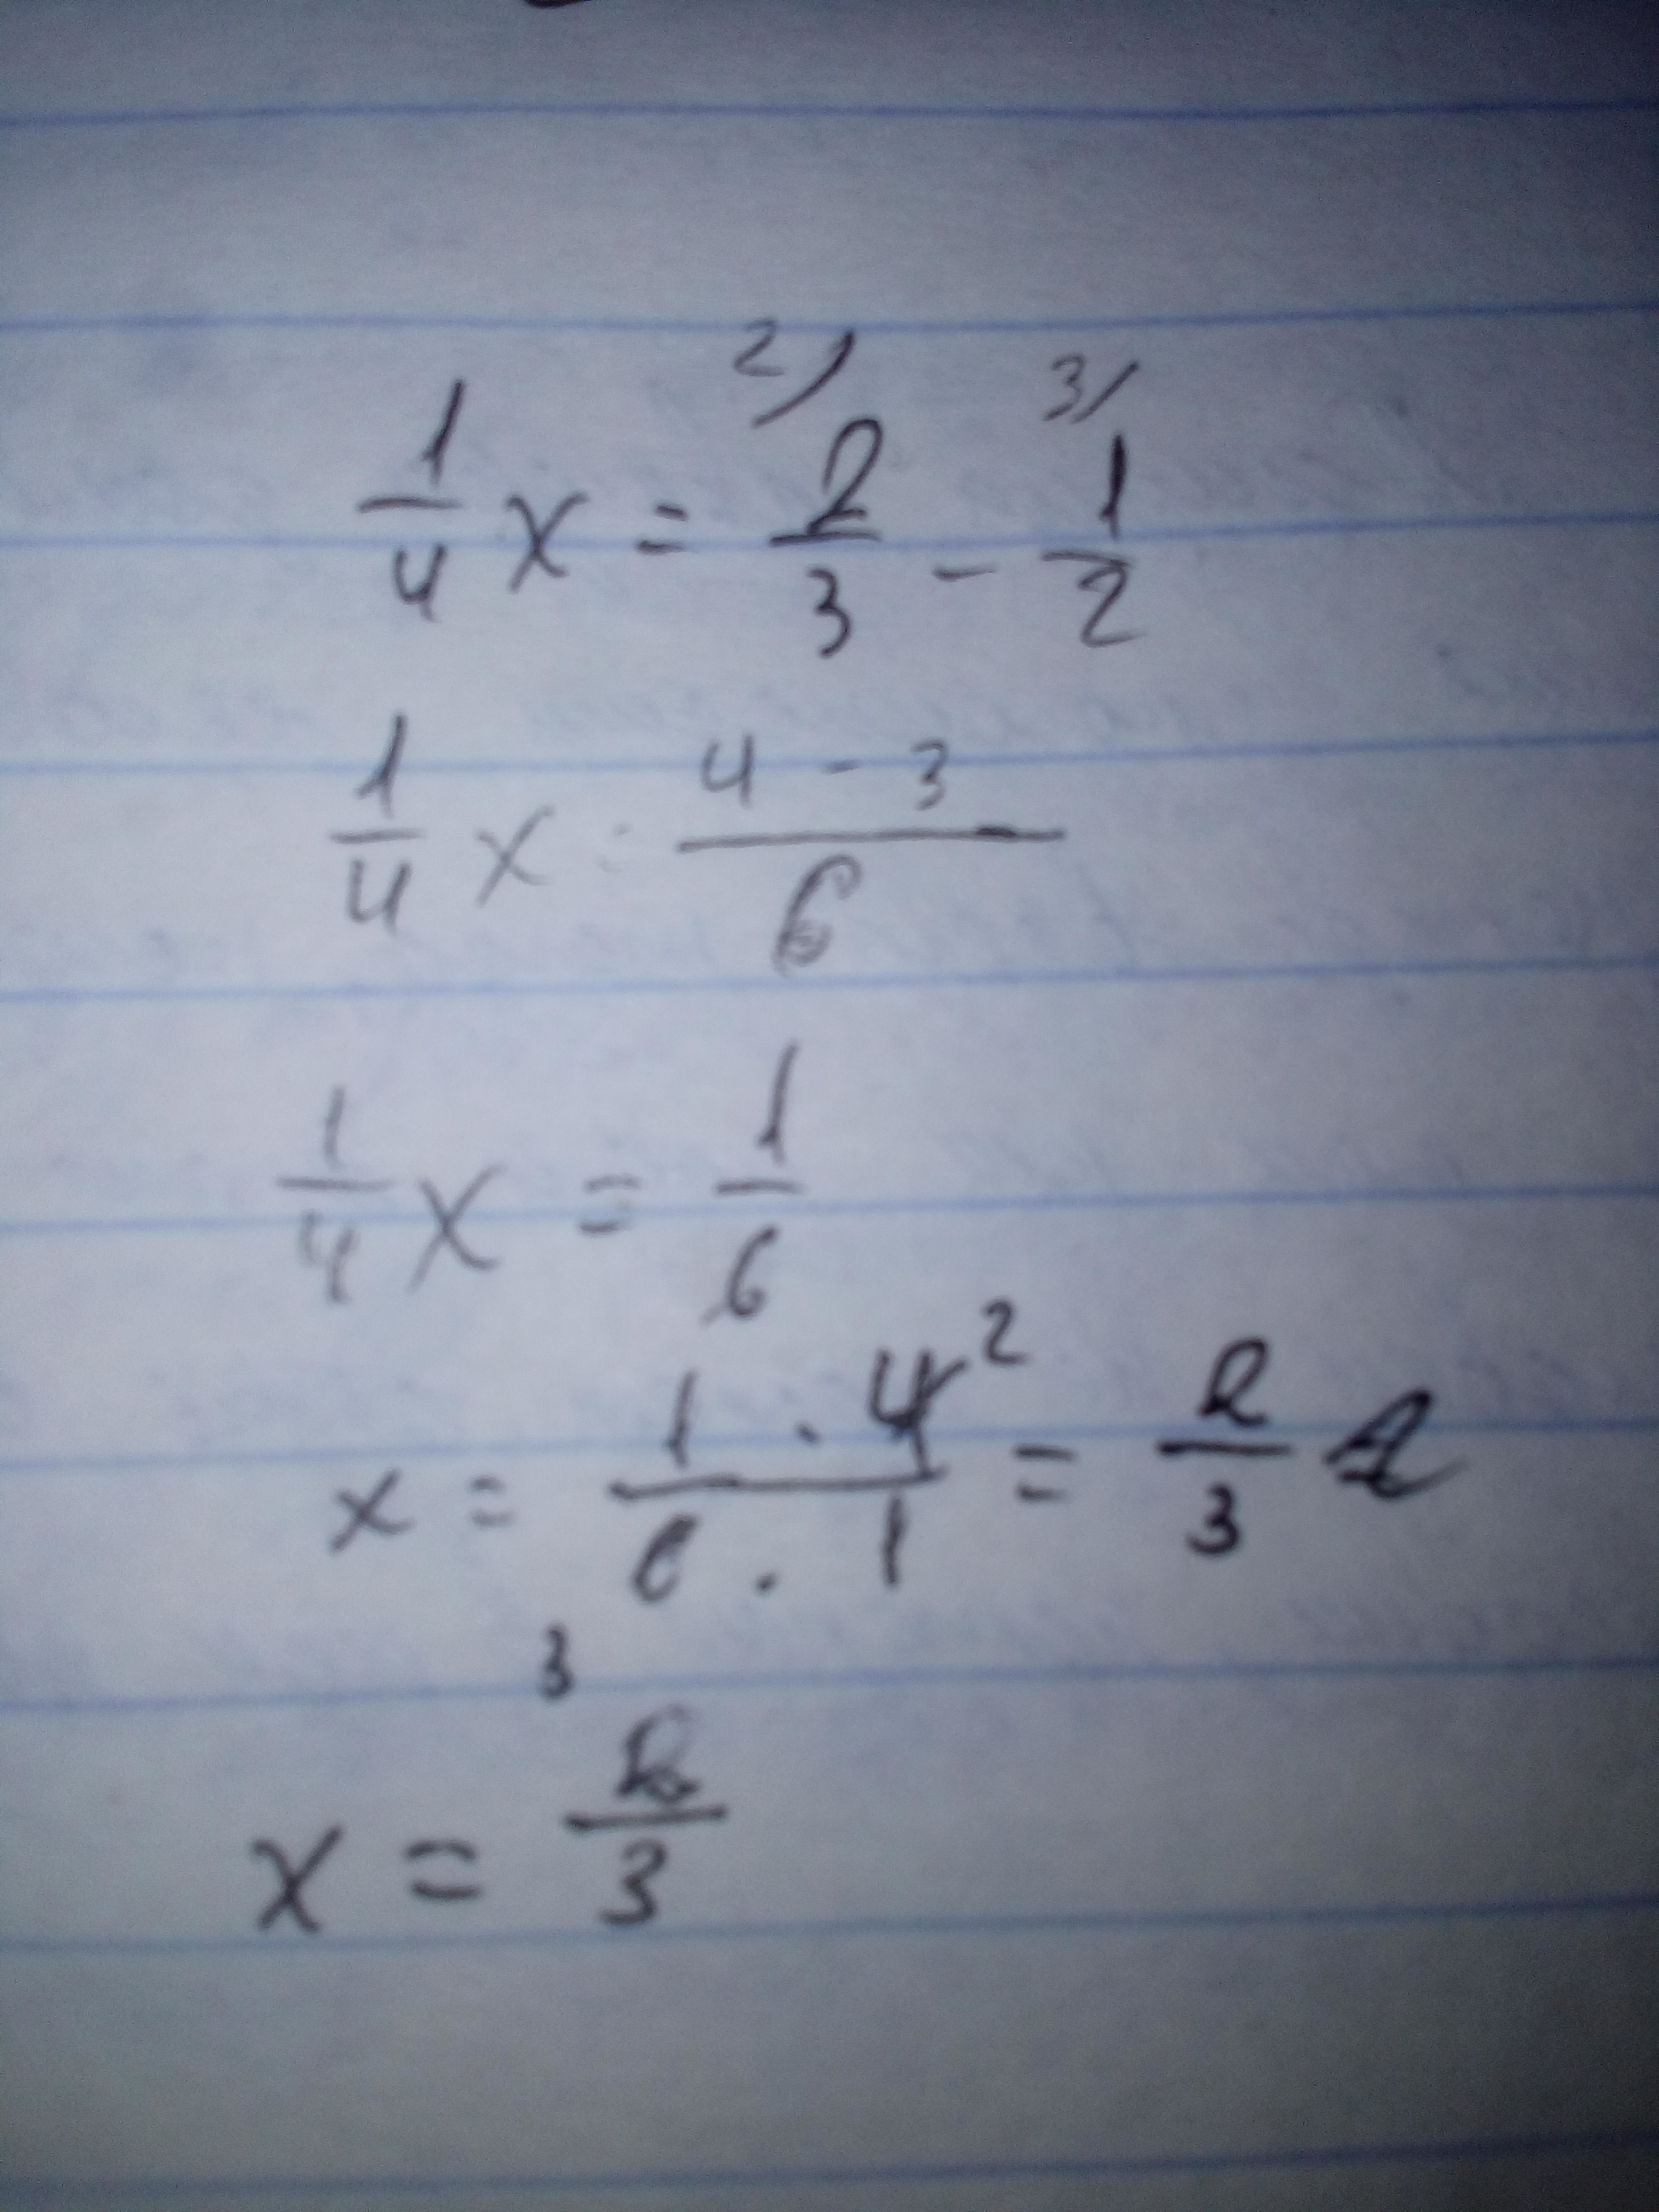 2) 3/
1/4 x = 2/3 - 1/2
1/4 x = (4 - 3)/6
1/4 x = 1/6
x = (1 · 4²)/(6 · 1) = 2/3
3
x = 2/3